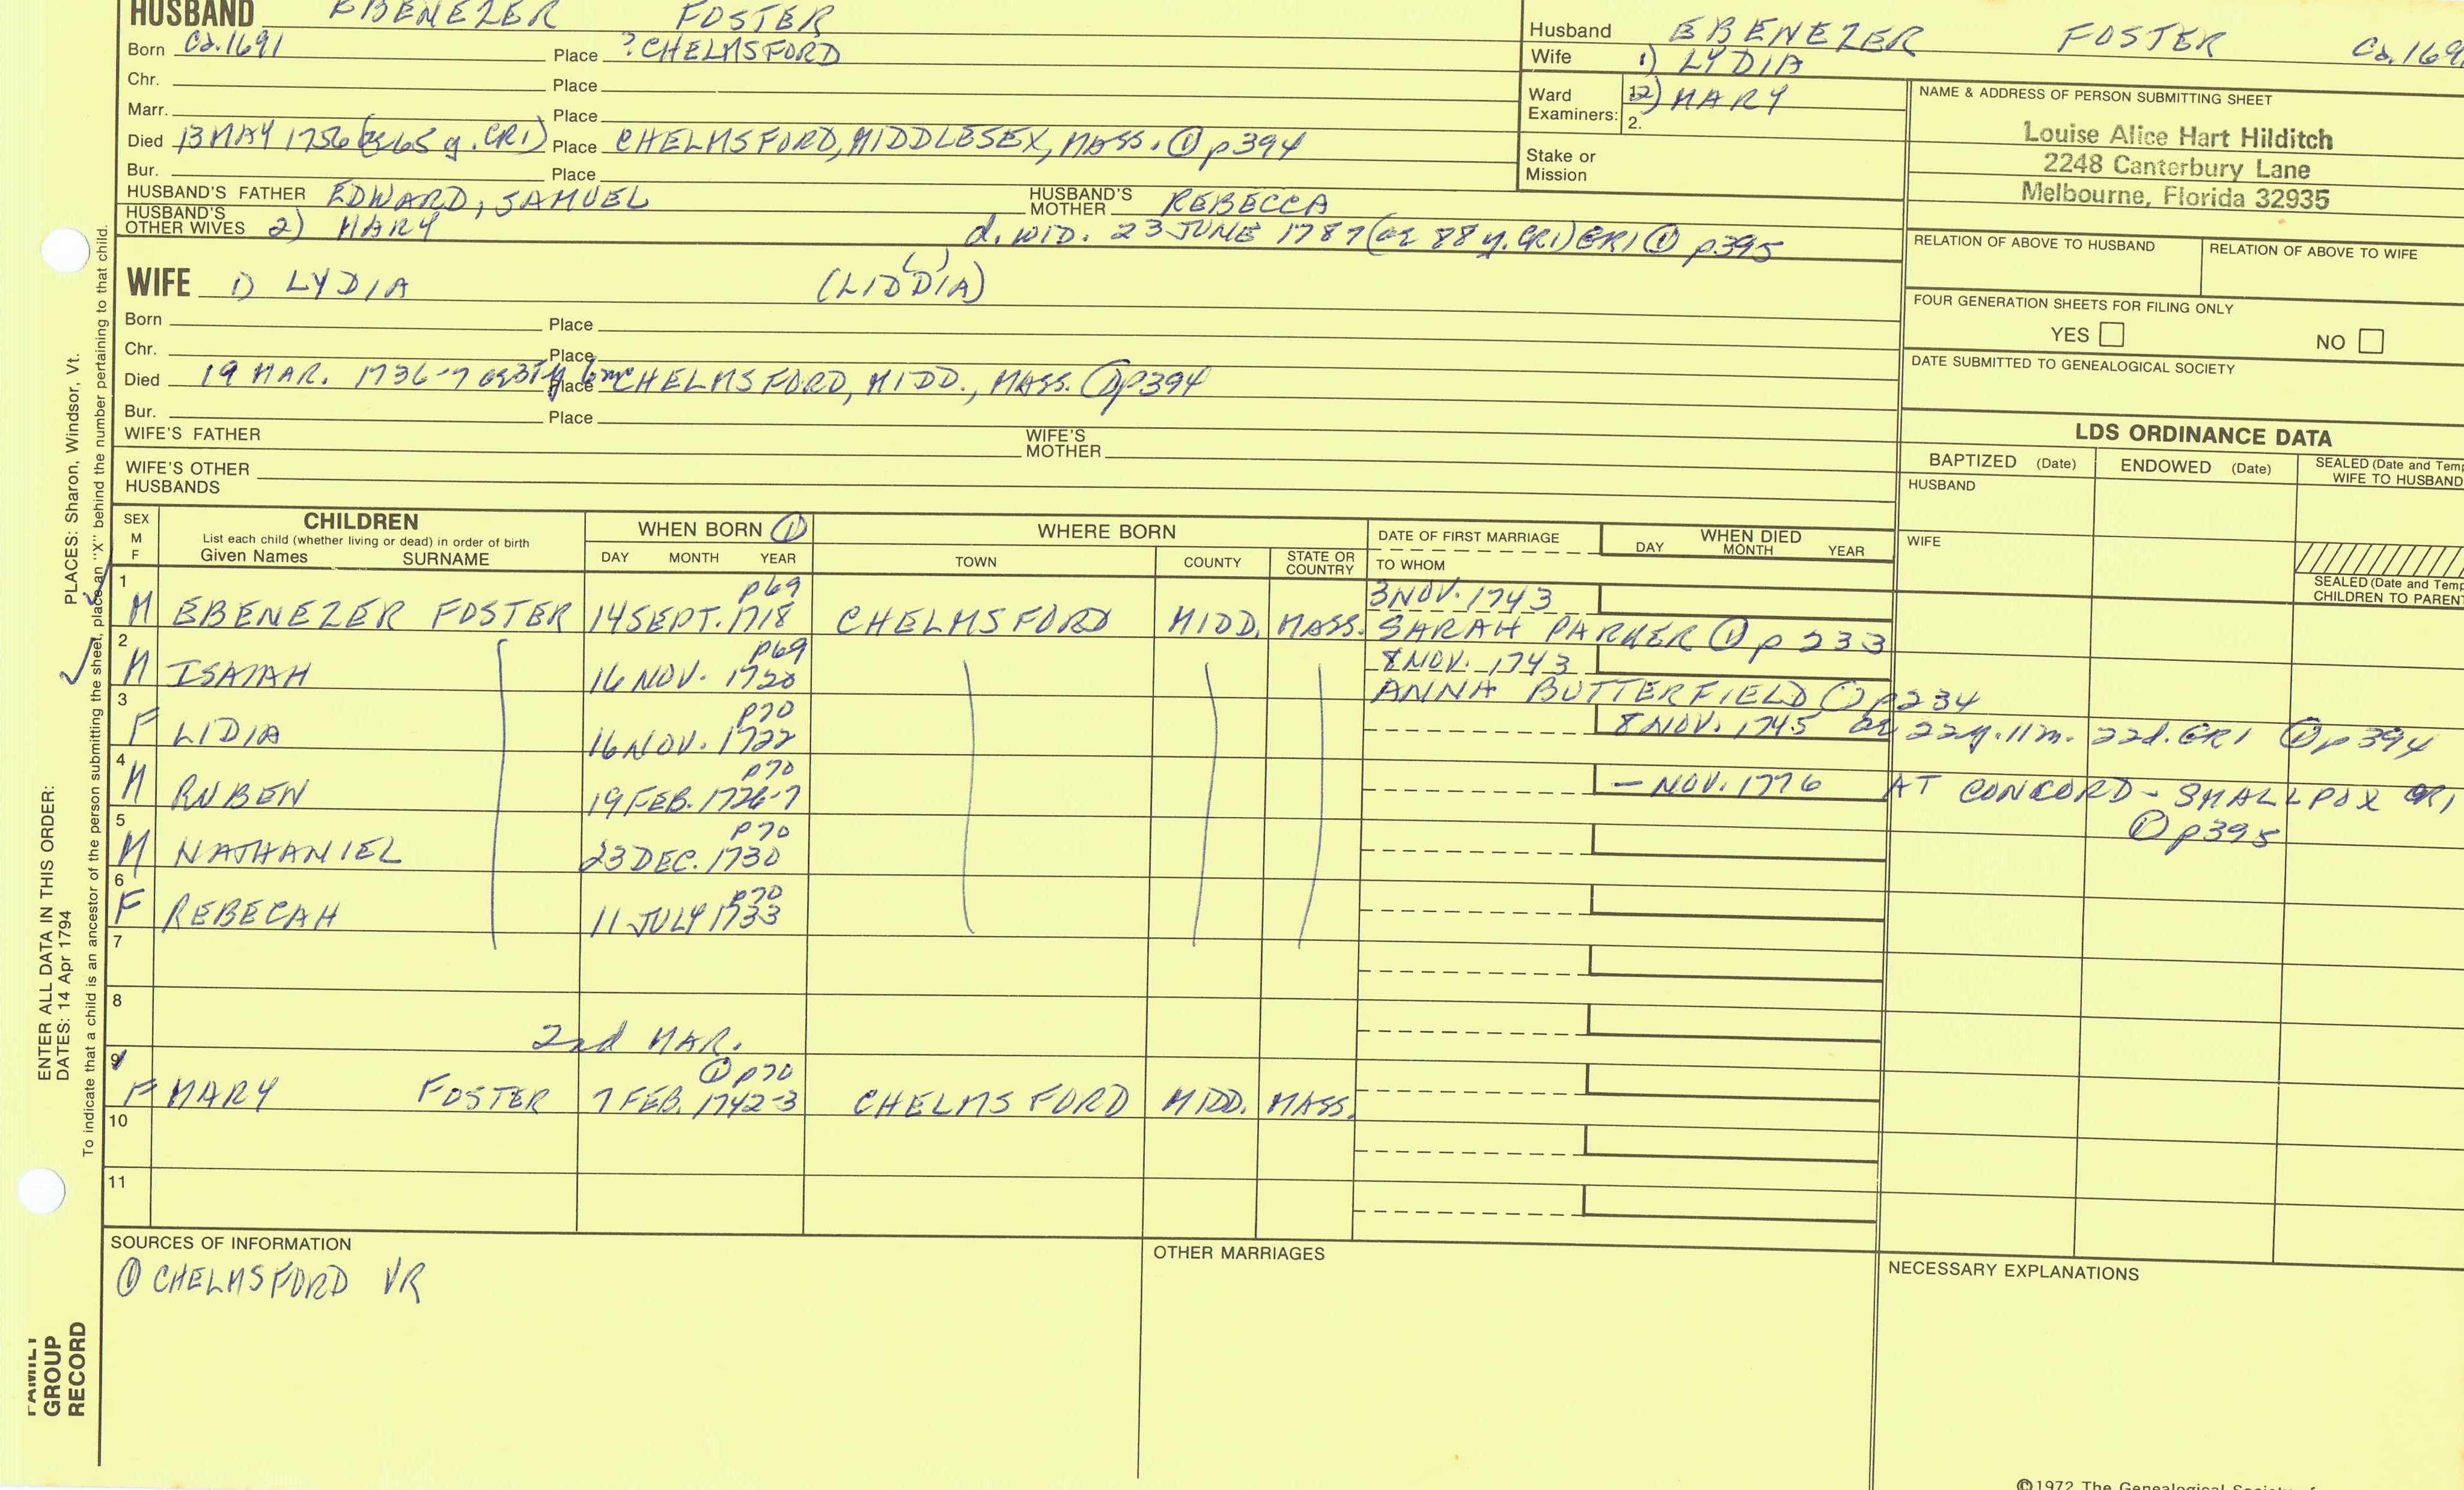 HUSBAND EBENEZER FOSTER
Born Ca.1691 Place ?CHELMSFORD
Chr. Place
Marr. Place
Died 13 MAY 1756 (ae 65 y. GR1) Place CHELMSFORD, MIDDLESEX, MASS. ① p394
Bur. Place
HUSBAND'S FATHER EDWARD, SAMUEL HUSBAND'S MOTHER REBECCA
HUSBAND'S OTHER WIVES 2) MARY d. WID. 23 JUNE 1787 (ae 88 y. GR1) GR1 ① p395
WIFE 1) LYDIA (LIDDIA)
Born Place
Chr. Place
Died 19 MAR. 1736-7 Place CHELMSFORD, MIDD., MASS. ① p394
Bur. Place
WIFE'S FATHER WIFE'S MOTHER
WIFE'S OTHER HUSBANDS
Husband EBENEZER FOSTER Ca. 169
Wife 1) LYDIA
Ward Examiners: 1. 2) MARY
2.
Stake or Mission
NAME & ADDRESS OF PERSON SUBMITTING SHEET
Louise Alice Hart Hilditch
2248 Canterbury Lane
Melbourne, Florida 32935
RELATION OF ABOVE TO HUSBAND RELATION OF ABOVE TO WIFE
FOUR GENERATION SHEETS FOR FILING ONLY
YES NO
DATE SUBMITTED TO GENEALOGICAL SOCIETY
LDS ORDINANCE DATA
BAPTIZED (Date) ENDOWED (Date) SEALED (Date and Temp
WIFE TO HUSBAND
HUSBAND
WIFE
SEALED (Date and Temp
CHILDREN TO PARENT
SEX M F CHILDREN WHEN BORN ① WHERE BORN DATE OF FIRST MARRIAGE WHEN DIED
List each child (whether living or dead) in order of birth
Given Names SURNAME DAY MONTH YEAR TOWN COUNTY STATE OR COUNTRY TO WHOM DAY MONTH YEAR
1 p69 3 NOV. 1743
M EBENEZER FOSTER 14 SEPT. 1718 CHELMSFORD MIDD. MASS. SARAH PARKER ① p 233
2 p69 8 NOV. 1743
M ISAIAH 16 NOV. 1720 ANNA BUTTERFIELD ① p234
3 p70
F LIDIA 16 NOV. 1722 8 NOV. 1745 ae 22y. 11m. 22d. GR1 ① p394
4 p70
M RUBEN 19 FEB. 1726-7 — NOV. 1776 AT CONCORD - SMALLPOX GR1
① p395
5 p70
M NATHANIEL 23 DEC. 1730
6 p70
F REBECAH 11 JULY 1733
7
8
2nd MAR.
9 ① p70
F MARY FOSTER 7 FEB. 1742-3 CHELMSFORD MIDD. MASS.
10
11
SOURCES OF INFORMATION
① CHELMSFORD VR
OTHER MARRIAGES
NECESSARY EXPLANATIONS
©1972 The Genealogical Society of
ENTER ALL DATA IN THIS ORDER:
DATES: 14 Apr 1794 PLACES: Sharon, Windsor, Vt.
To indicate that a child is an ancestor of the person submitting the sheet, place an "X" behind the number pertaining to that child.
FAMILY
GROUP
RECORD